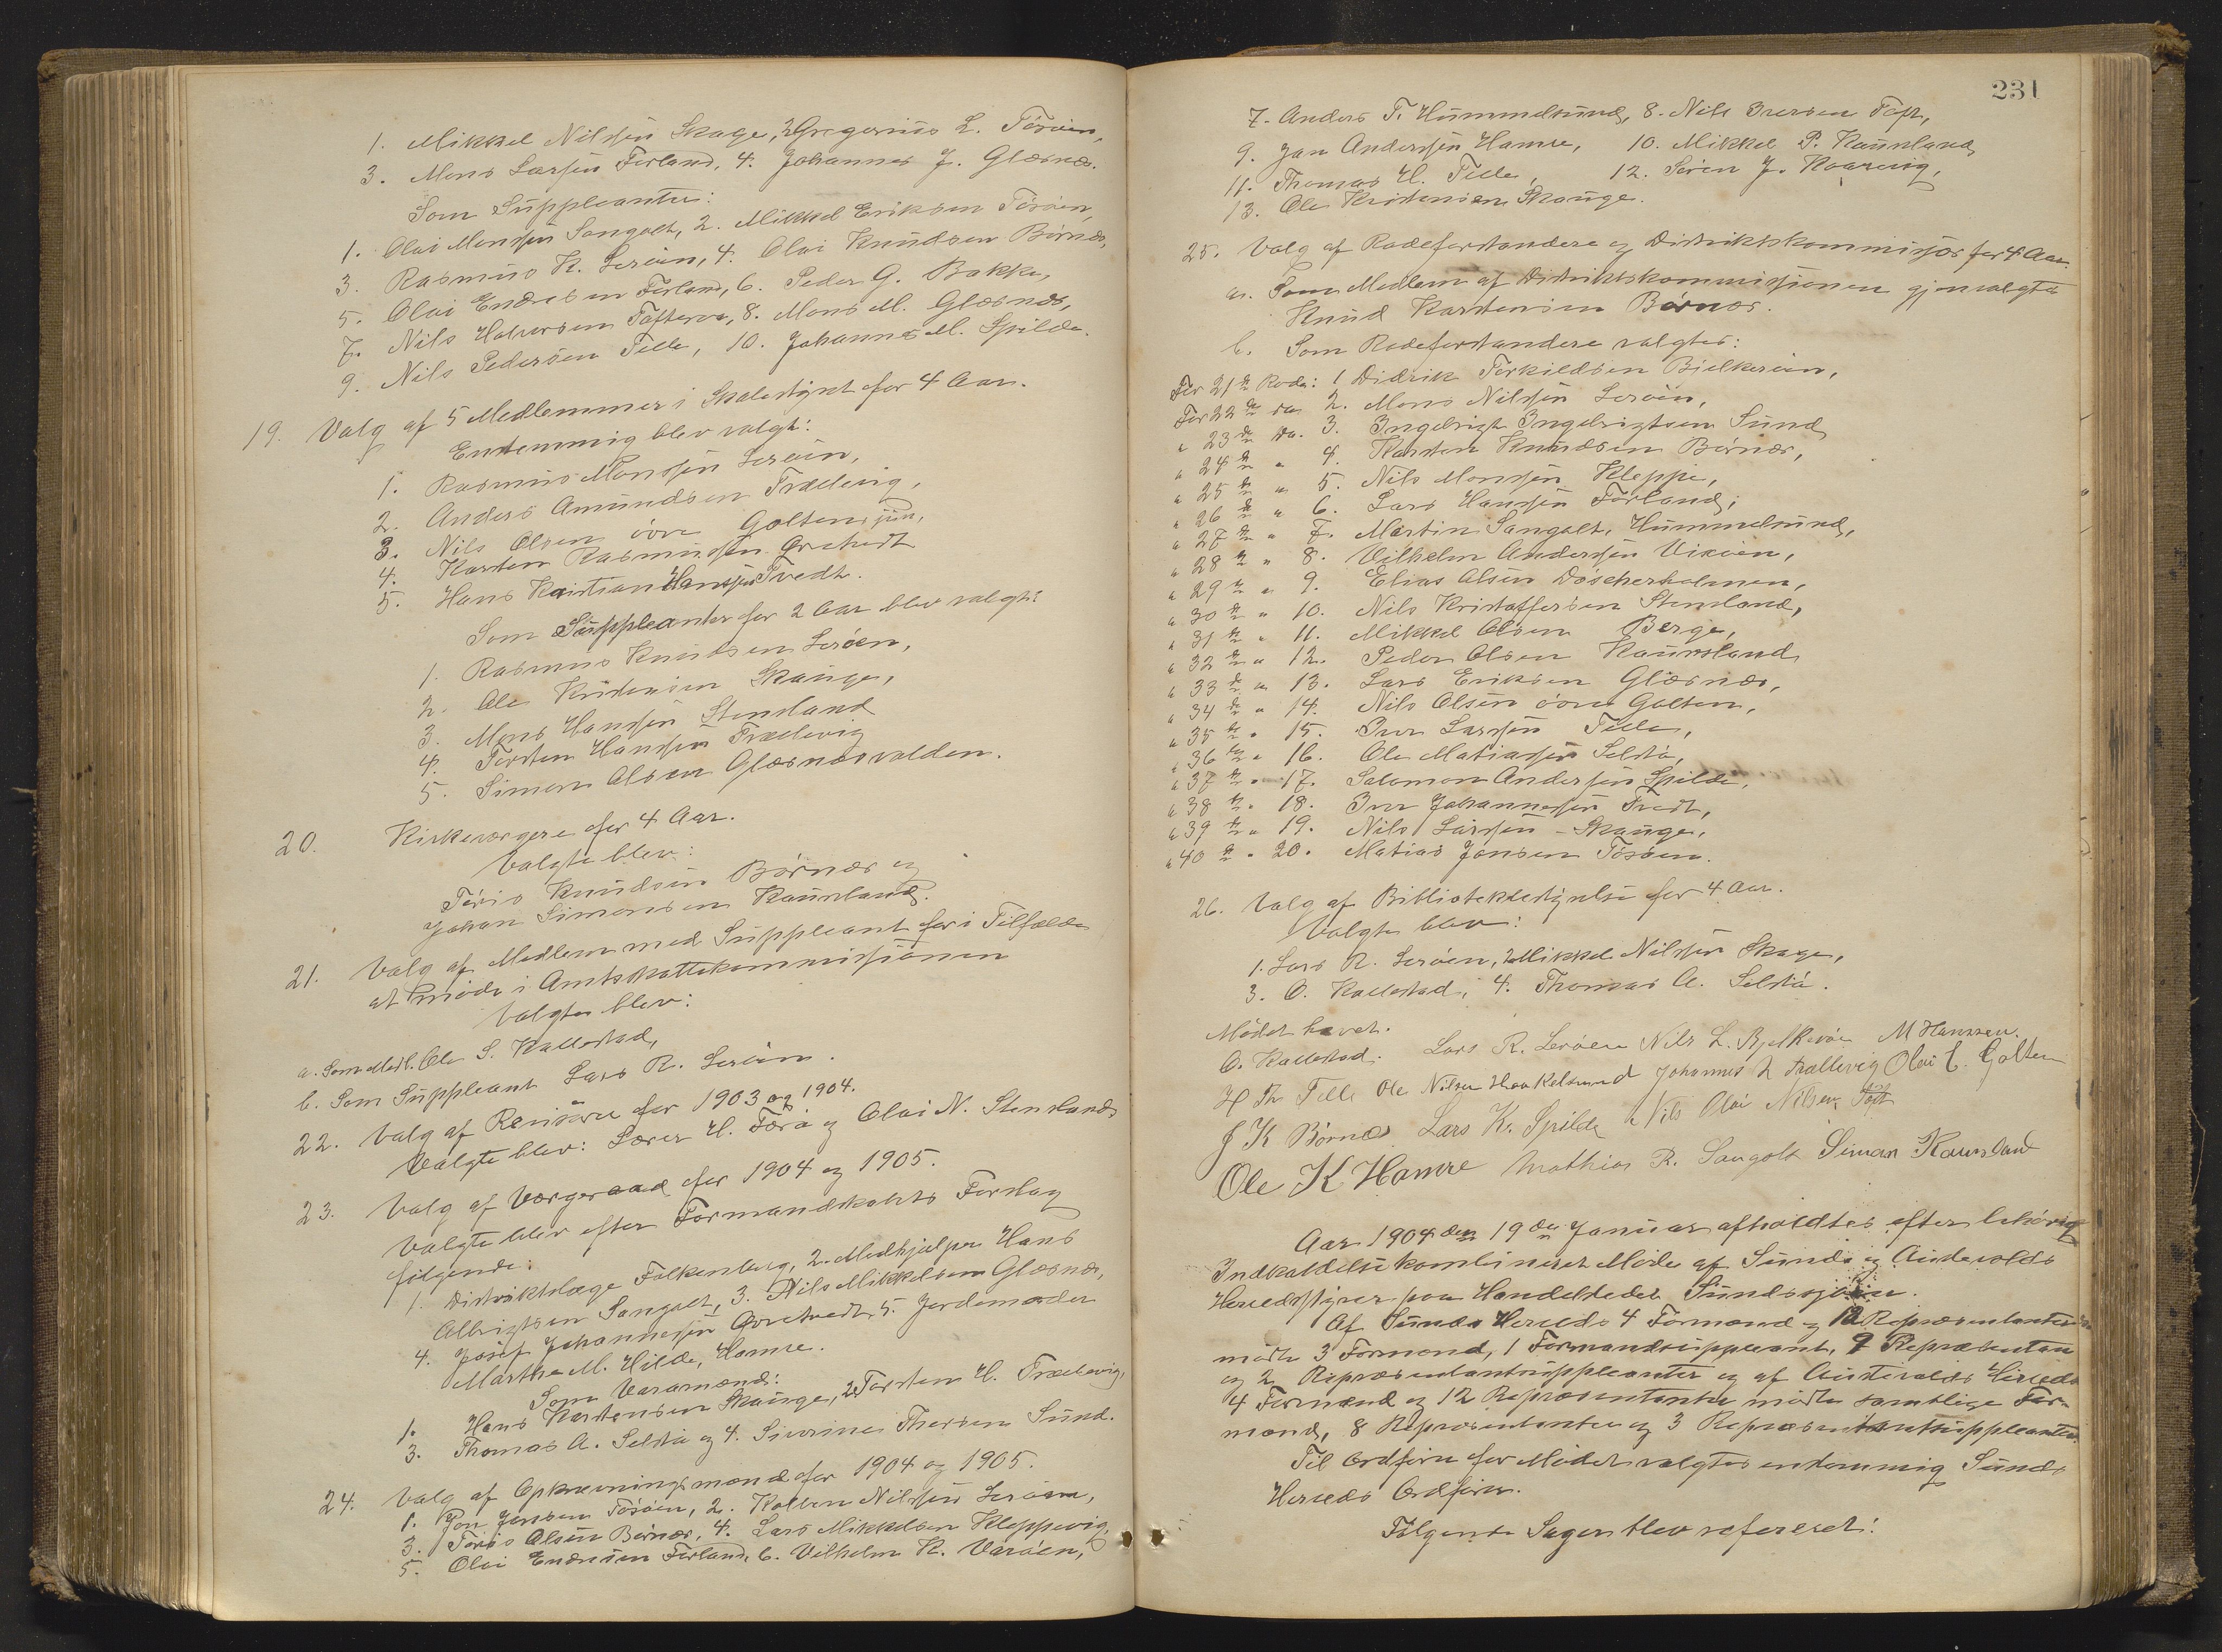 1. Mikkel Nilssen Skage, 2 Gregorius L. Toröen,
3. Mons Larssen Forland, 4. Johannes J. Glæsnæs.
Som Suppleanter:
1. Olai Monssen Sangolt, 2. Mikkel Eriksen Toröen,
3. Rasmus K. Leröen, 4. Olai Knudsen Börnæs,
5. Olai Endresen Forland, 6. Peder G. Bakke,
7. Nils Halvorsen Tofterø, 8. Mons M. Glæsnæs,
9. Nils Pedersen Telle, 10. Johannes M. Spilde.
19. Valg af 5 Medlemmer i Skolestyret for 4 Aar.
Enstemmig blev valgt:
1. Rasmus Monssen Leröen,
2. Anders Amundsen Trællevig,
3. Nils Olsen övre Golten, jun,
4. Karsten Rasmussen Gravtvedt
5. Hans Kristian Hanssen Tvedt.
Som Suppleanter for 2 Aar blev valgt:
1. Rasmus Knudsen Leröen,
2. Ole Kristensen Skauge,
3. Mons Hanssen Stensland
4. Torsten Hanssen Trællevig
5. Simon Olsen Glæsnæsvalden.
20. Kirkeværgere for 4 Aar.
Valgte blev:
Töris Knudsen Börnæs og
Johan Simonsen Kaunsland.
21. Valg af Medlem med Suppleant for i Tilfælde
at möde i Amtsskattekommissionen
Valgtes blev:
a. Som Medl. Ole S. Kallestad,
b. Som Suppleant Lars R. Leröen.
22. Valg af Revisorer for 1903 og 1904.
Valgte blev: Lærer H. Torö og Olai N. Stensland
23. Valg af Vergeraad for 1904 og 1905.
Valgte blev efter Formandskabets Forslag
fölgende:
1. Distriktslæge Falkenberg, 2. Medhjælper Hans
Albrigtsen Sangolt, 3. Nils Mikkelsen Glæsnæs,
4. Josef Johannessen Gravtvedt, 5. Jordemoder
Marthe M. Hilde, Hamre.
Som Varamænd:
1. Hans Karstensen Skauge, 2. Torsten H. Trællevig,
3. Thomas A. Selstö og 4. Siverine Thorsen Sund.
24. Valg af Opkrævningsmænd for 1904 og 1905.
1. Jon Jonsen Toröen, 2. Kolben Nilssen Leröen,
3. Töris Olsen Börnæs, 4. Lars Mikkelsen Kleppevig,
5. Olai Endresen Forland, 6. Vilhelm K. Varöen,
231
7. Anders T. Hummelsund, 8. Nils Iversen Toft,
9. Jan Anderssen Hamre, 10. Mikkel P. Kaunsland,
11. Thomas H. Telle, 12. Sören J. Kaarevig,
13. Ole Kristensen Skauge.
25. Valg af Rodeforstandere og Distriktskommissær for 4 Aar.
a. Som Medlem af Distriktskommissionen gjenvalgtes
Knud Karstensen Börnæs.
b. Som Rodeforstandere valgtes:
For 21de Rode: 1 Didrik Torkildsen Bjelkeröen,
For 22de do 2. Mons Nilssen Leröen,
" 23de do. 3. Ingebrigt Ingebrigtsen Sund
" 24de " 4. Karsten Knudsen Börnæs,
" 25de " 5. Nils Monssen Kleppe,
" 26de " 6. Lars Hanssen Forland,
" 27de " 7. Martin Sangolt, Hummelsund,
" 28de " 8. Vilhelm Anderssen Vixöen,
" 29de " 9. Elias Olsen Döscherholmen,
" 30te " 10. Nils Kristoffersen Stensland,
" 31te " 11. Mikkel Olsen Berge,
" 32te " 12. Peder Olsen Kaunsland
" 33de " 13. Lars Eriksen Glæsnæs,
" 34de " 14. Nils Olsen övre Golten,
" 35te " 15. Iver Larssen Telle,
" 36te " 16. Ole Matiassen Selstö,
" 37te " 17. Salomon Anderssen Spilde,
" 38te " 18. Iver Johannessen Tvedt,
" 39te " 19. Nils Larssen Skauge,
" 40de " 20. Matias Jonsen Toröen.
26. Valg af Bibliotekbestyrelse for 4 Aar.
Valgte blev:
1. Lars R. Leröen, 2 Mikkel Nilssen Skage,
3. O. Kallestad, 4. Thomas A. Selstö.
Mödet hævet.
O. Kallestad. Lars R. Leröen Nils L. Bjelkeröe M Hanssen.
H Th Telle Ole Nilsen Haakelsund Johannes H Trællevig Olai E. Golten
J K Börnæs Lars K. Spilde Nils Olai Nilsen Toft
Ole K Hamre Mathias R. Sangolt Simon Kaunsland
Aar 1904 den 19de Januar afholdtes efter lovlig
Indkaldelse kombineret Möde af Sunds og Austevolds
Herredsstyrer paa Handelstedet Sundssjöen.
Af Sunds Herreds 4 Formænd og 12 Repræsentanter
mödte 3 Formænd, 1 Formandssuppleant, 9 Repræsentanter
og 2 Repræsentantsuppleanter og af Austevolds Herreds
4 Formænd og 12 Repræsentanter mödte samtlige For-
mænd, 8 Repræsentanter og 3 Repræsentantsuppleanter.
Til Ordförer for Mödet valgtes enstemmig Sunds
Herreds Ordförer.
Fölgende Sager blev refereret: